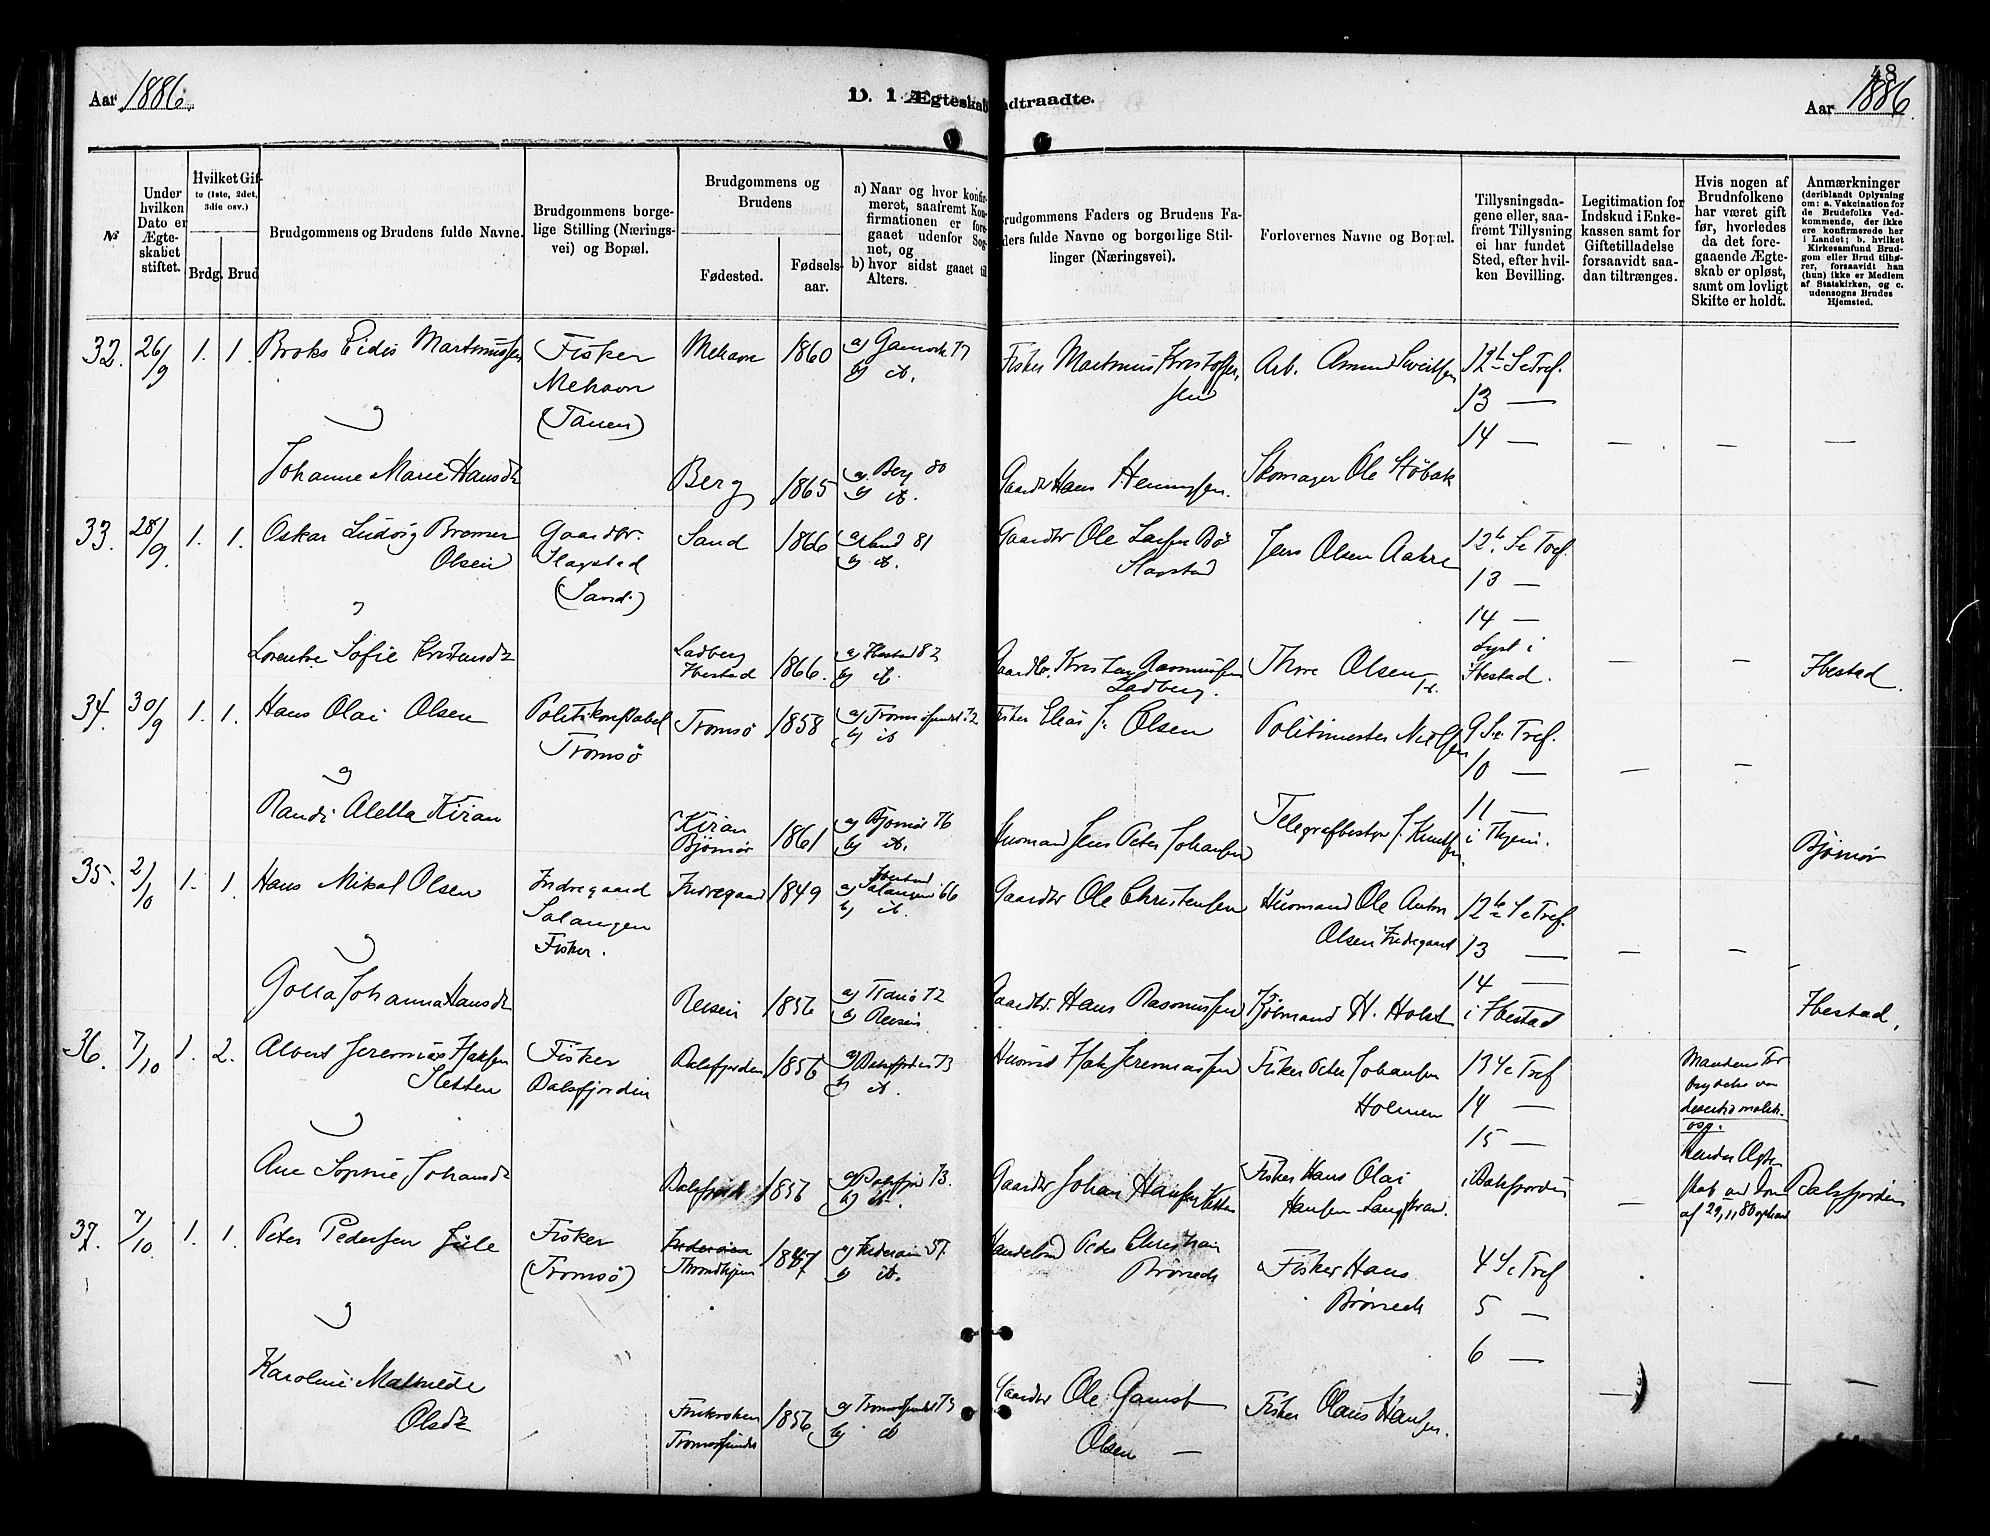 Aar 1886.
D. 1 Ægteskab
ndtraadte.
48
Aar 1886
No
Under hvilken Dato er Ægteskabet stiftet.
Hvilket Gifte (1ste, 2det, 3die osv.)
Brdg.
Brud
Brudgommens og Brudens fulde Navne.
Brudgommens borgelige Stilling (Næringsvei) og Bopæl.
Brudgommens og Brudens
Fødested.
Fødselsaar.
a) Naar og hvor konfirmeret, saafremt Konfirmationen er foregaaet udenfor Sognet, og
b) hvor sidst gaaet til Alters.
Brudgommens Faders og Brudens Faders fulde Navne og borgerlige Stillinger (Næringsvei).
Forlovernes Navne og Bopæl.
Tillysningsdagene eller, saafremt Tillysning ei har fundet Sted, efter hvilken Bevilling.
Legitimation for Indskud i Enkekassen samt for Giftetilladelse forsaavidt saadan tiltrænges.
Hvis nogen af Brudnfolkene har været gift før, hvorledes da det foregaaende Ægteskab er opløst, samt om lovligt Skifte er holdt.
Anmærkninger
(deriblandt Oplysning om: a. Vakcination for de Brudefolks Vedkommende, der ikke ere konfirmerede her i Landet; b. hvilket Kirkesamfund Brudgom eller Brud tilhører, forsaavidt han (hun) ikke er Medlem af Statskirken, og c. udensogns Brudes Hjemsted.
32. 26/9 1. 1.
Fisker
Mehavn
(Tanen)
Mehavn 1860
a) Gamvik 77
b) it.
Fisker Martinus Kristoffersen
Arb. Amund Sivertsen
12te S e Tref.
13 —
14 —
Johanne Marie Hansdt
Berg 1865
a) Berg 80
b) it.
Gaardbr Hans Henningsen.
Skomager Ole Stöbak
33. 28/9. 1. 1.
Oskar Ludvig Bremer
Olsen
Gaardbr.
Slagstad
(Sand.)
Sand 1866
a) Sand 81
b) it.
Gaardbr Ole Larsen Bö
Slagstad
Jens Olsen Aakre
12te S e Tref.
13 —
14 —
Lyst i
Ibestad.
Lorentze Sofie Kristensdt
Ladberg
Ibestad 1866.
a) Ibestad 82
b) it.
Gaardbr. Kristen Rasmussen
Ladberg.
Thore Olsen
Ibestad.
34. 30/9 1. 1.
Hans Olai Olsen
Politikonstabel
Tromsö
Tromsö 1858
a) Tromsösundet 72
b) it
Fisker Elias J. Olsen
Politimester Nielsen
9 S e Tref.
10 —
11 —
i Thjem.
Randi Aletta Kiran
Kiran
Bjørnør 1861
a) Bjørnør 76
b) it.
Husmand Jens Peter Johansen
Telegrafbestyr J. Knutsen.
Bjørnør
35. 2/10 1. 1.
Hans Mikal Olsen
Indregaard
Salangen
Fisker.
Indregaard 1849
Ibestad
a) Salangen 66
b) it.
Gaardbr Ole Christensen
Husmand Ole Anton
Olsen Indregaard
12te S e Tref.
13 —
14 —
i Ibestad
Johanna Hansdt
Reisen 1856
a) 72
b) Reisen.
Gaardbr. Hans Rasmussen
Kjøbmand H. Holst
Ibestad,
36. 7/10 1. 2.
Albert Jeremias Isaksen
Sletten
Fisker
Balsfjorden
Balsfjorden 1856
a) Balsfjorden 73
b) it.
Husmd Isak Jeremiassen
Fisker Peter Johansen
Holmen
13 S e Tref
14 —
15 —
i Balsfjorden
Ane Sophie Johansdt
Balsfjord 1856
a) Balsfjord 73.
b) it.
Gaardbr Johan Hansen
Fisker Hans Olai
Hansen Langstran.
af 29/11 80 ophævet
Balsfjorden
37. 7/10. 1. 1.
Peter Pedersen
Fisker
(Tromsö)
Inderøien
Throndhjem 1847
a) Inderøien 57.
b) it.
Peder Christian
Fisker Hans
4 S e Tref
5 —
6 —
Karoline Mathilde
Olsdt
Tromsösundet 1856
a) Tromsösundet 73
b) it
Gaardbr Ole Gamst
Olsen —
Fisker Olaus Hansen.